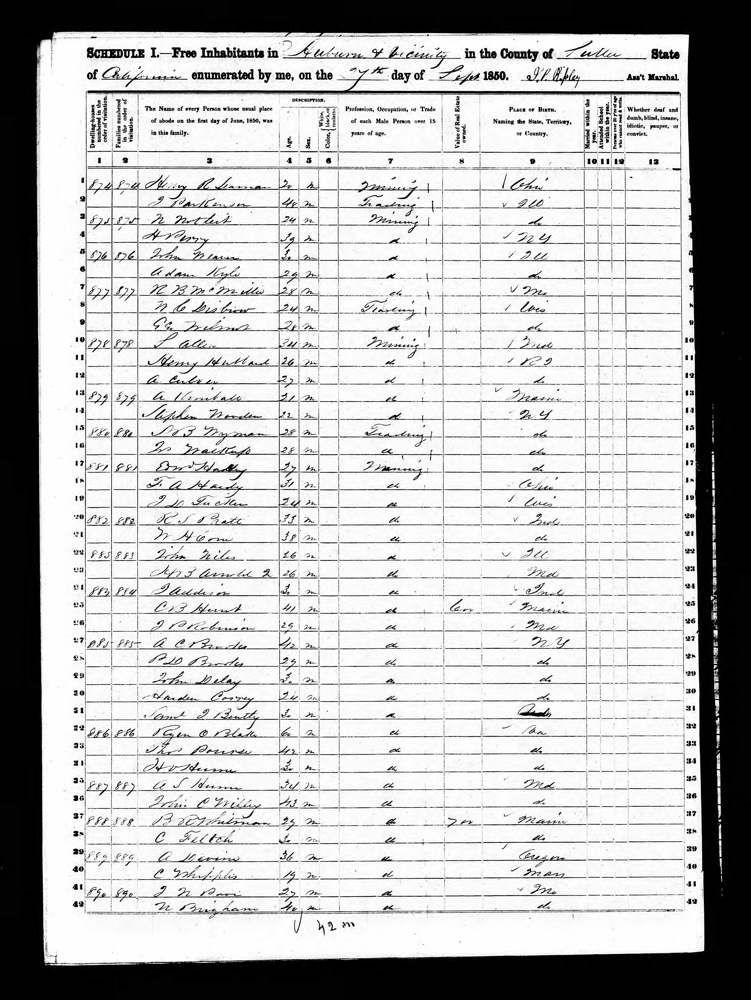 SCHEDULE I.—Free Inhabitants in Auburn & Vicinity in the County of Sutter State
of California enumerated by me, on the 27th day of Sept 1850. J. P. Ripley Ass't Marshal.
Dwelling-houses numbered in the order of visitation.
Families numbered in the order of visitation.
The Name of every Person whose usual place of abode on the first day of June, 1850, was in this family.
DESCRIPTION.
Age.
Sex.
Color, White, black, or mulatto.
Profession, Occupation, or Trade of each Male Person over 15 years of age.
Value of Real Estate owned.
PLACE OF BIRTH. Naming the State, Territory, or Country.
Married within the year.
Attended School within the year.
Persons over 20 y'rs of age who cannot read & write.
Whether deaf and dumb, blind, insane, idiotic, pauper, or convict.
1 2 3 4 5 6 7 8 9 10 11 12 13
1 874 874 Henry R Seaman 20 m Mining Ohio 1
2 J Parkenson 40 m Trading Ill 2
3 875 875 N 24 m Mining do 3
4 H Perry 39 m d N Y 4
5 876 876 John 30 m d Ill 5
6 Adam Kyle 29 m d do 6
7 877 877 R B McMille 28 m do Mo 7
8 N C Disbrow 24 m Trading Wis 8
9 Geo Wilmot 28 m d do 9
10 878 878 S Allen 34 m Mining Ind 10
11 Henry Hubbard 26 m d R I 11
12 A Culver 27 m d do 12
13 879 879 A Kimball 21 m d Maine 13
14 Stephen Worden 22 m d N Y 14
15 880 880 S B Wyman 28 m Trading do 15
16 28 m d do 16
17 881 881 Edw Hardy 27 m Mining do 17
18 F. A Hardy 31 m d Ohio 18
19 J W Tucker 24 m d Wis 19
20 882 882 R S Pratt 33 m d Ind 20
21 W H Corn 38 m d do 21
22 883 883 John Niles 26 m d Ill 22
23 Arnold 2 26 m do Md 23
24 883 884 J Addison 30 m d Ind 24
25 C B Hunt 41 m d 600 Maine 25
26 J P Robinson 29 m d Md 26
27 885 885 A C Brooks 42 m d N Y 27
28 P D Brooks 29 m d do 28
29 John Delay 30 m d do 29
30 Harden 24 m d do 30
31 Saml J Bentty 30 m d 31
32 886 886 Ryen O Blake 60 m d Va 32
33 Thos 42 m d do 33
34 H V Hume 30 m d do 34
35 887 887 A S Hume 34 m d Md 35
36 John C Willey 43 m d do 36
37 888 888 B W Whitman 29 m d 700 Maine 37
38 C Feltch 30 m d do 38
39 889 889 A Devine 36 m d Oregon 39
40 C Whipple 19 m d Mass 40
41 890 890 J N 27 m d Mo 41
42 N Brigham 40 m d do 42
42 m